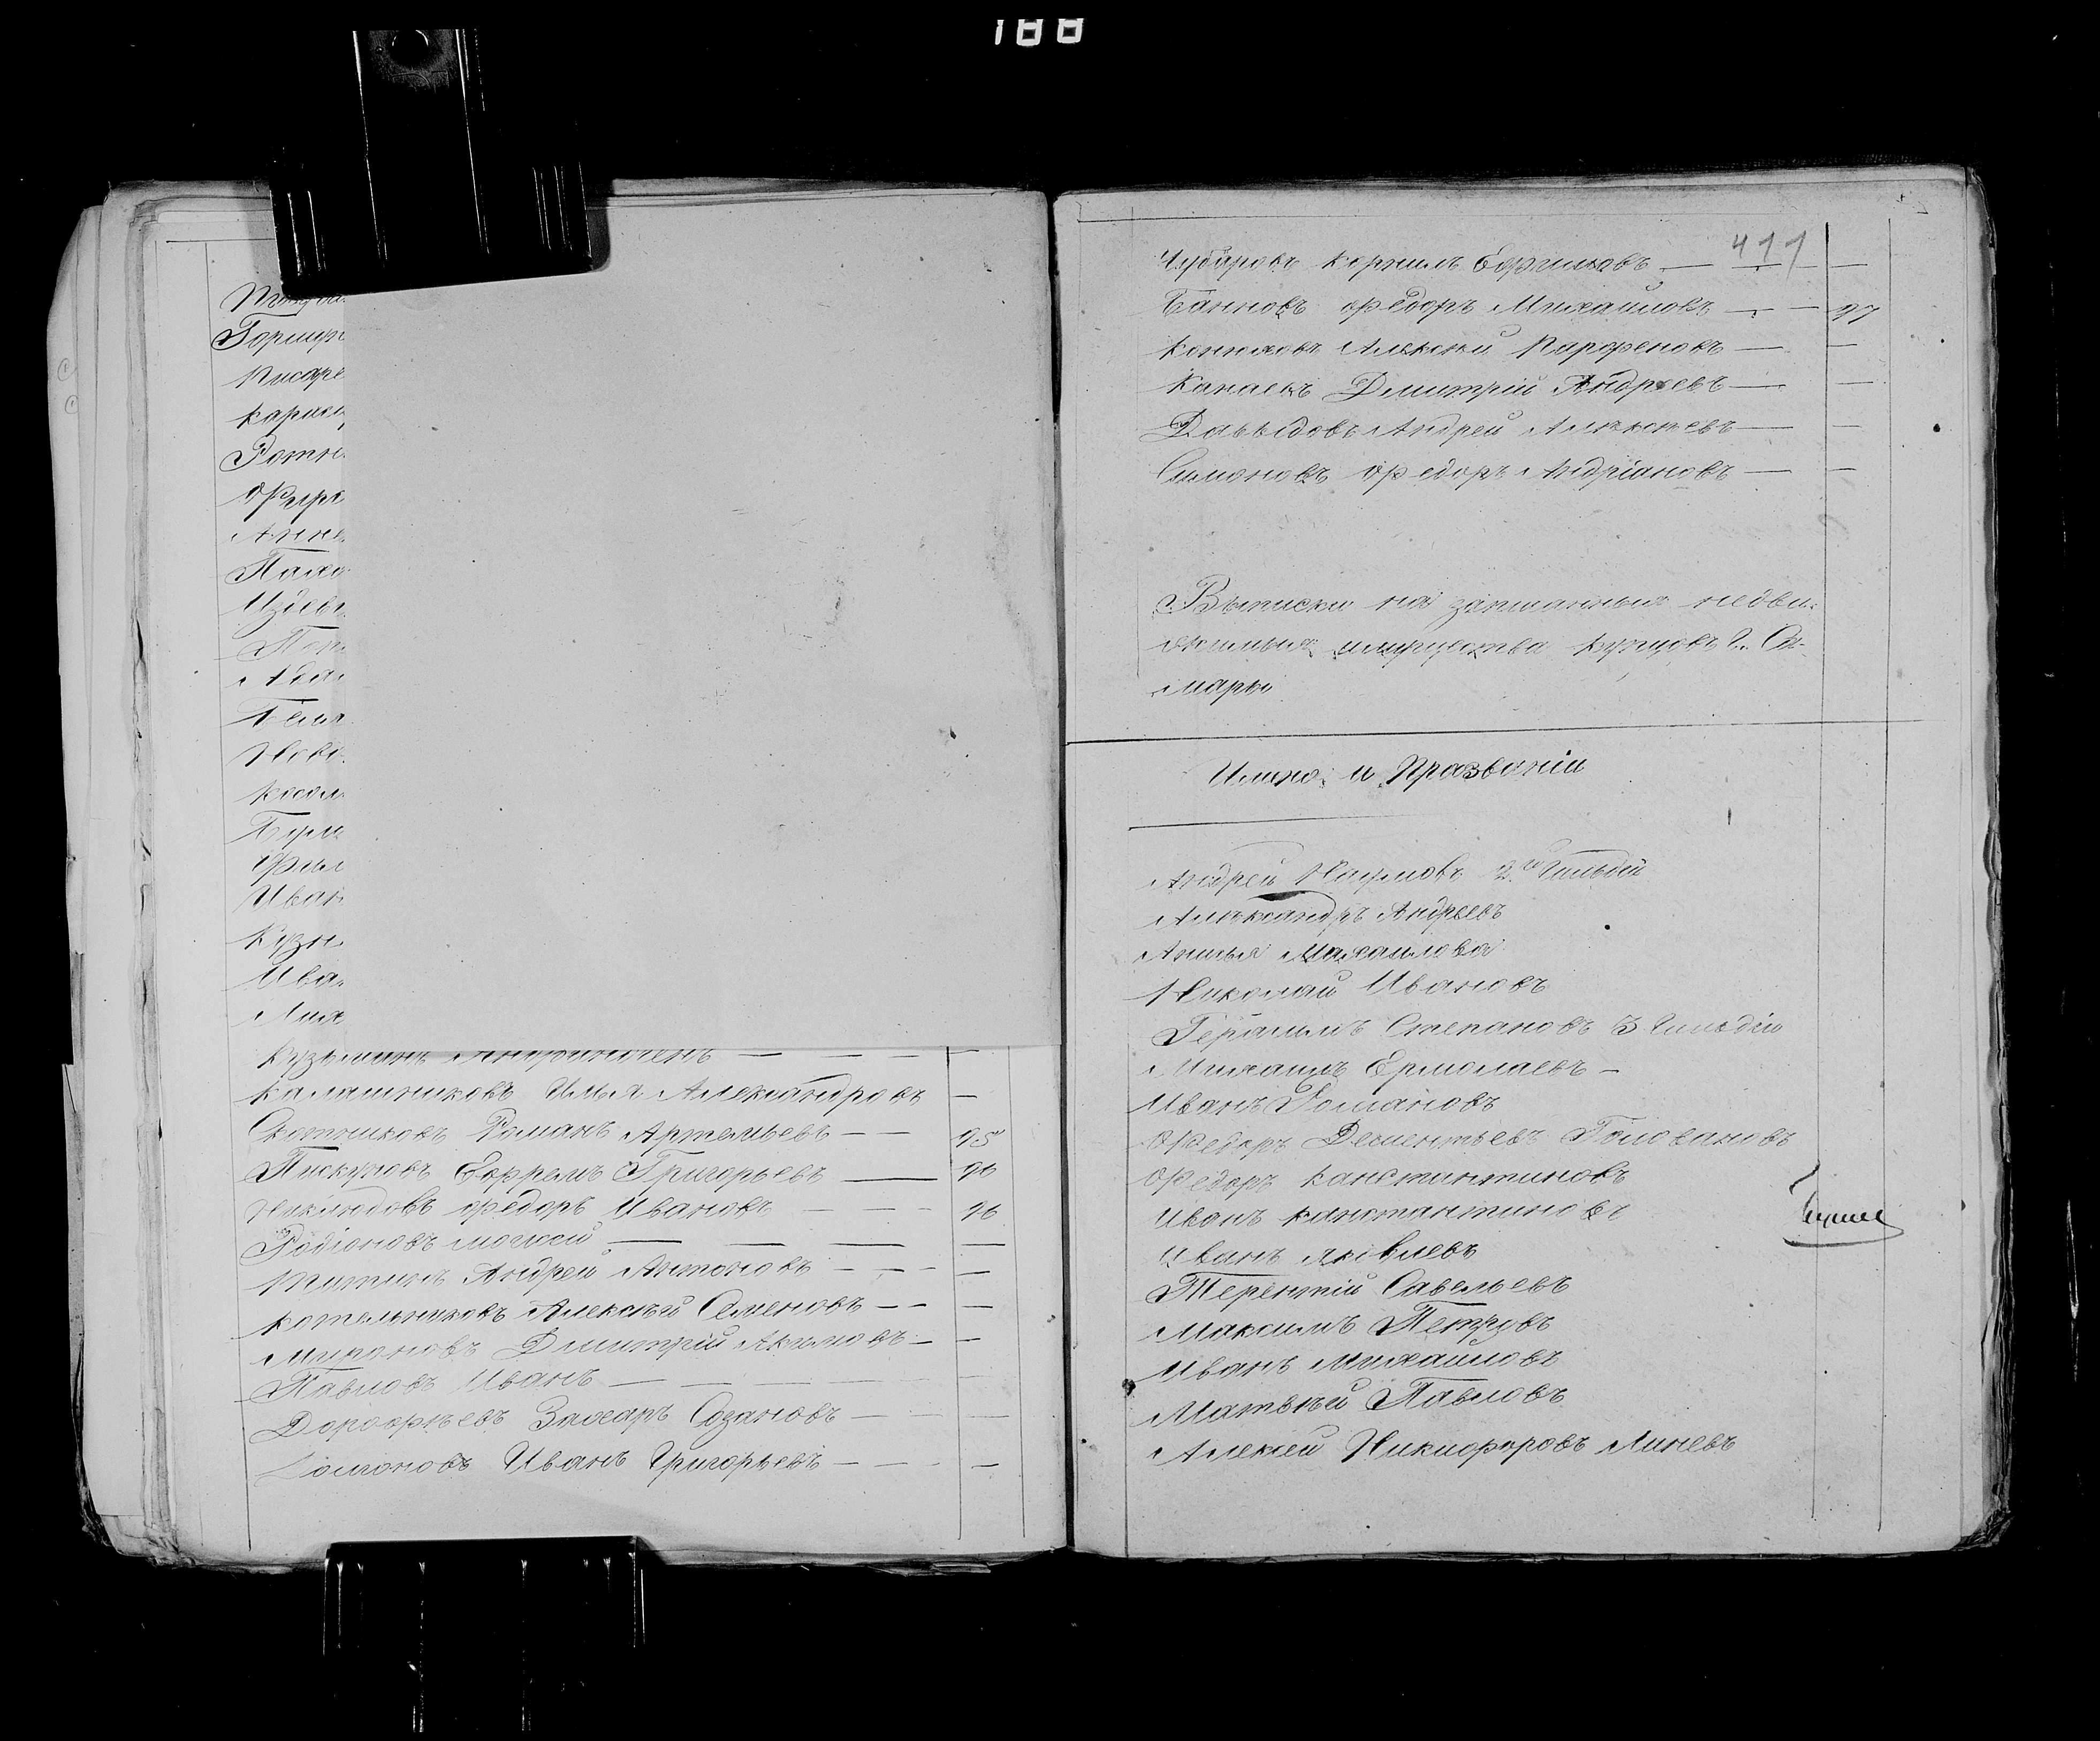 188
Горшун
Писаре
Карпо
Ротн
Фе
Анне
Палa
Изъев
Поп
Аба
Беля
Ново
Косол
Бурм
Фил
Иван
Кузн
Ива
Мих
Кузьминъ — — — —
Калашниковъ Илья Александровъ —
Сотниковъ Романъ Артемьевъ — — 95
Пискуновъ Ефремъ Григорьевъ — 96
Федоръ Ивановъ — — — 96
Родіоновъ Мосей — — — —
Митинъ Андрей Антоновъ — — —
Котельниковъ Алексѣй Семеновъ — — —
Мироновъ Дмитрій Акимовъ — —
Павловъ Иванъ — — —
Дорофѣевъ Захаръ Созановъ — — —
Иванъ Григорьевъ — — —
411
Корнилъ — — —
Банновъ Федоръ Михайловъ — — 97
Конюховъ Алексей Парфеновъ — —
Канаевъ Дмитрій Андреевъ — —
Давыдовъ Андрей Алексѣевъ — —
Симоновъ Федоръ Андріановъ — —
Выписки на недви-
жимыя имущества купцовъ г. Са-
мары
Имяно и Празванiи
Андрей Наумовъ 2й Гильдіи
Александръ Андреевъ
Михаилова
Николай Ивановъ
Герасимъ Степановъ 3 Гильдіи
Михаилъ Ермолаевъ —
Иванъ Романовъ
Федоръ Дементьевъ Головановъ
Федоръ Канстантиновъ
Иванъ Канстантиновъ
Иванъ Яковлевъ
Терентій Савельевъ
Максимъ Петровъ
Иванъ Михайловъ
Матвѣй Павловъ
Алексей Никифоровъ Линевъ